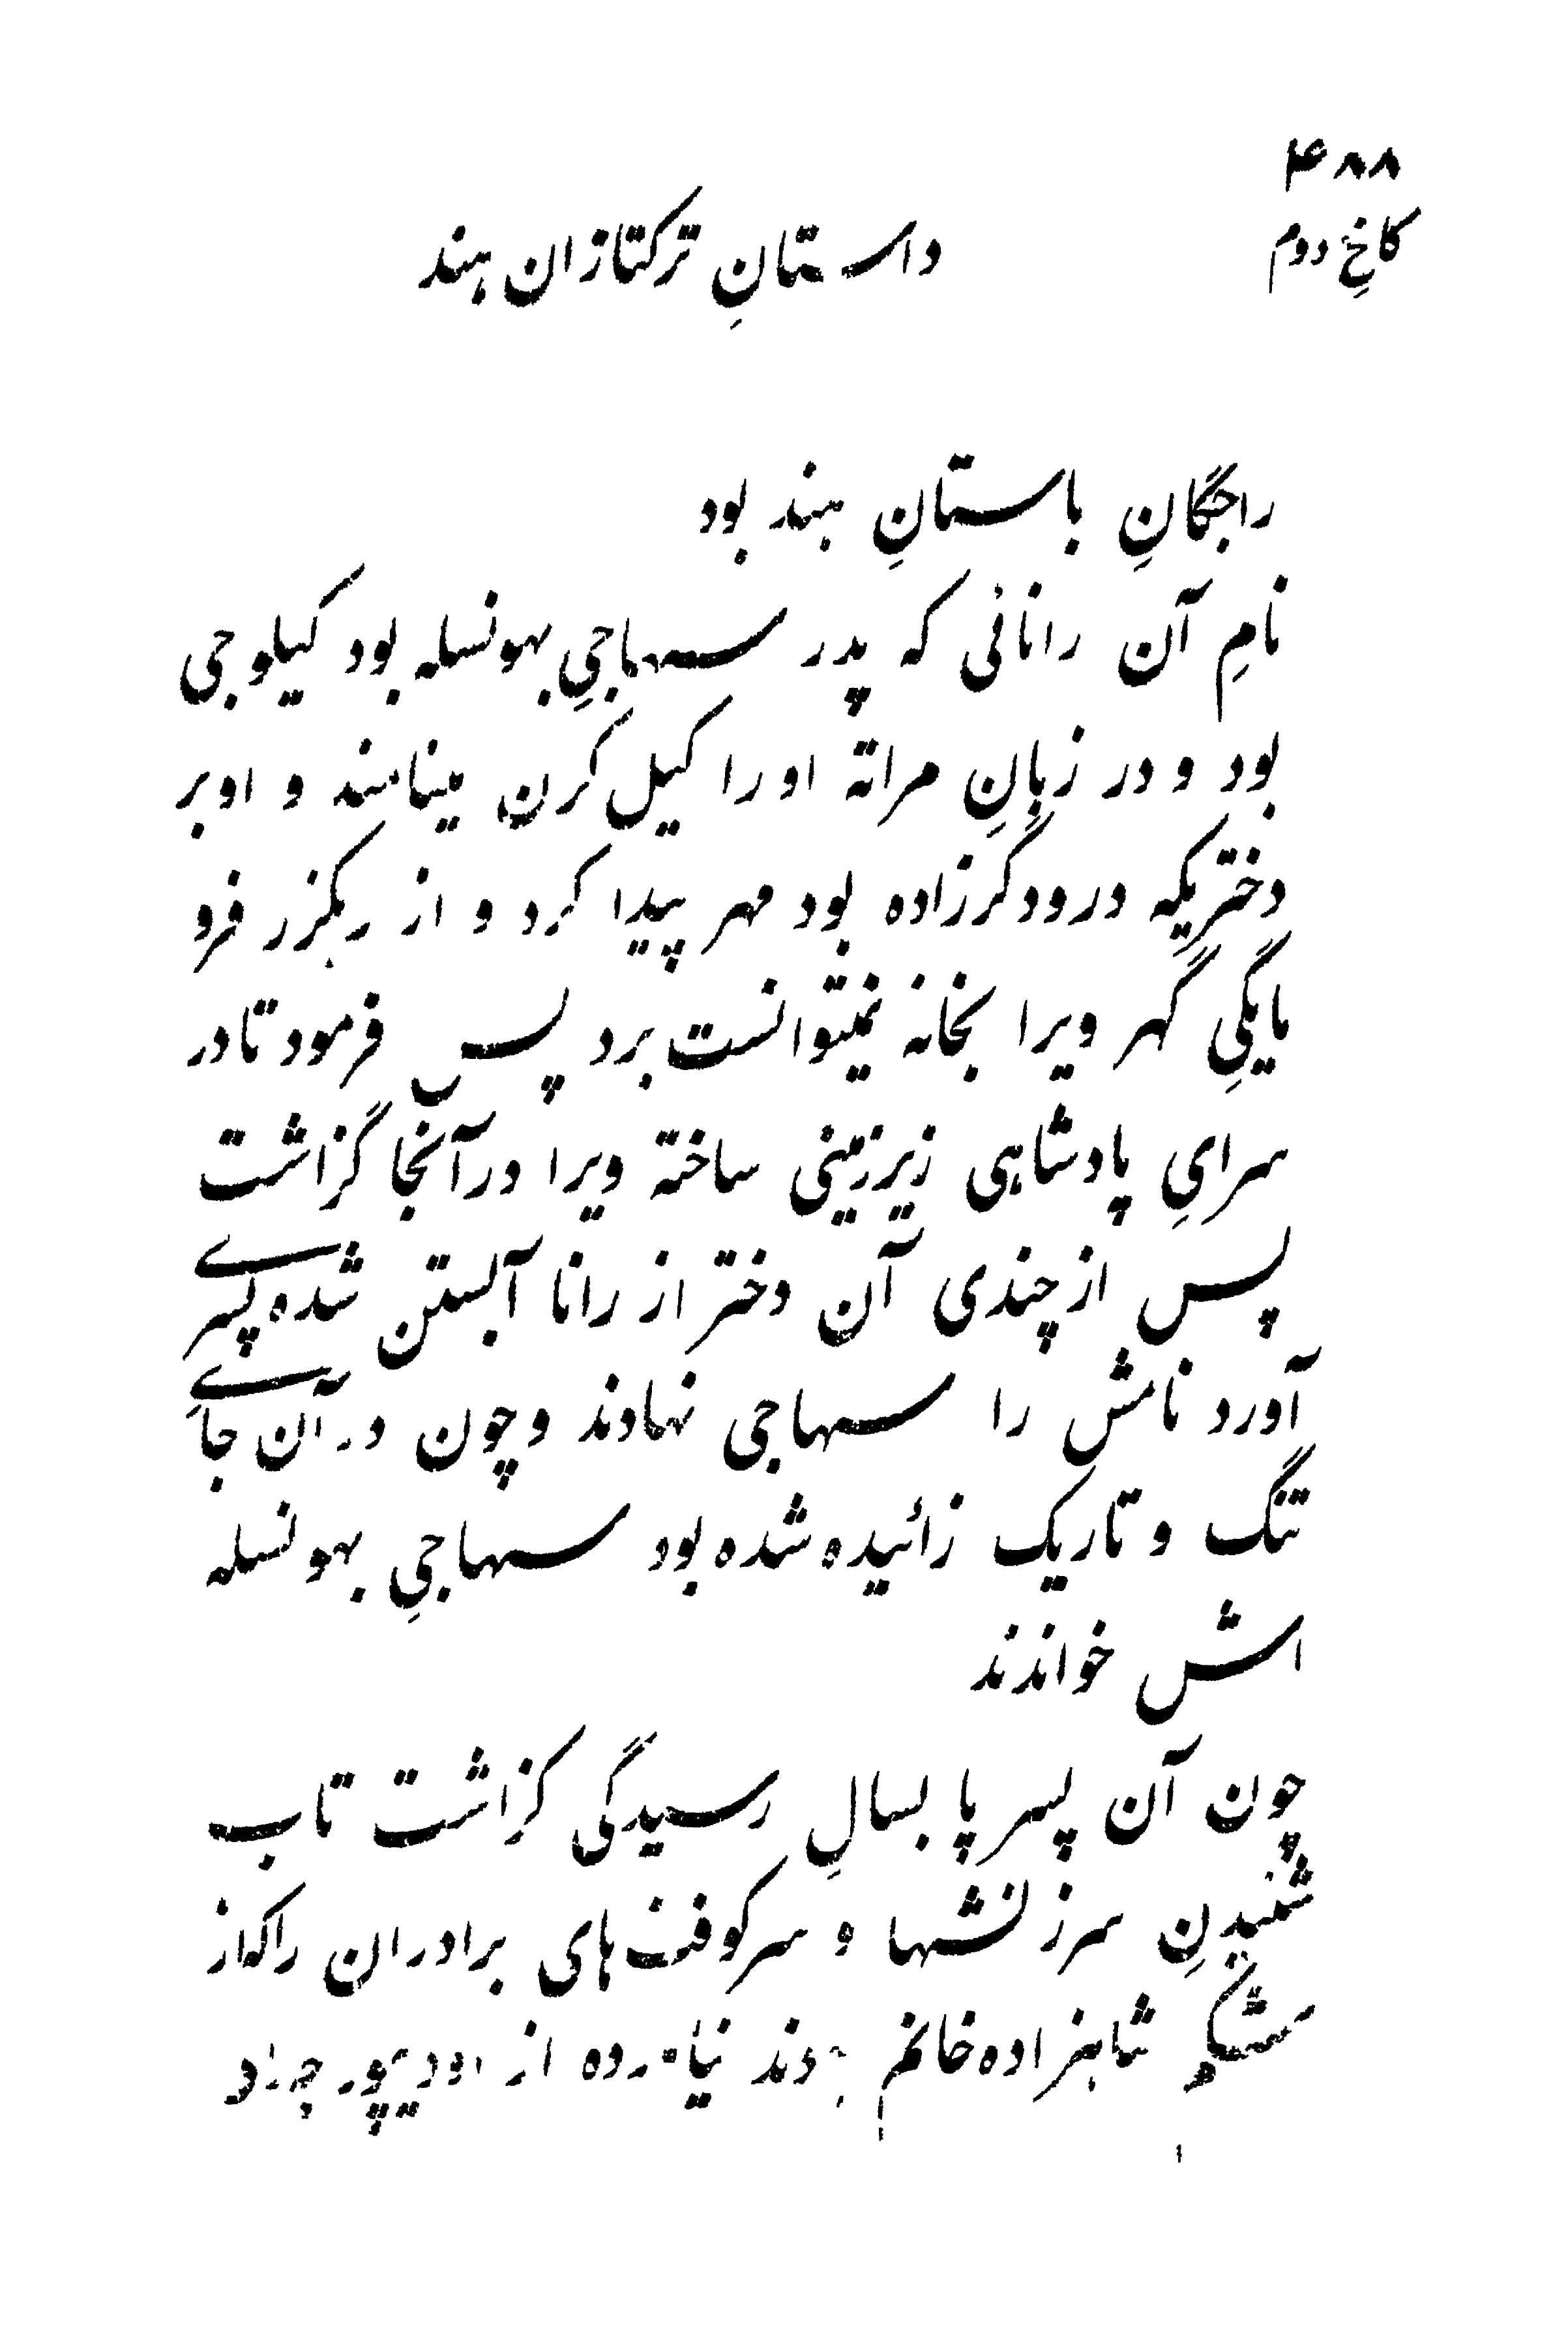 ۴۸۸
کاخِ دوم
داستانِ ترکتازان هند
راجگانِ باستانِ هند بود
نامِ آن رانائی که پدر سهاجیِ بهونسله بود کیلوجی
بود و در زبانِ مراته اورا کیل کرن مینامند و او بر
دختریکه درودگرزاده بود مهر پیدا کرد و از رهگزر فرو
مایگیِ گهر ویرا بخانه نمیتوانست برد پس فرمود تا در
سرایِ پادشاهی زیرزمینی ساخته ویرا در آنجا گزاشت
پس از چندی آن دختر از رانا آبستن شده پسرے
آورد نامش را سهاجی نهادند و چون در آن جاے
تنگ و تاریک زائیده شده بود سهاجیِ بهونسله
اش خواندند
چون آن پسر پا بسالِ رسیدگی گزاشت تاب
شنیدنِ سرزنشها و سرکوفت‌های برادران را که از
شاهزاده خانم بودند نیاورده از اودیپور